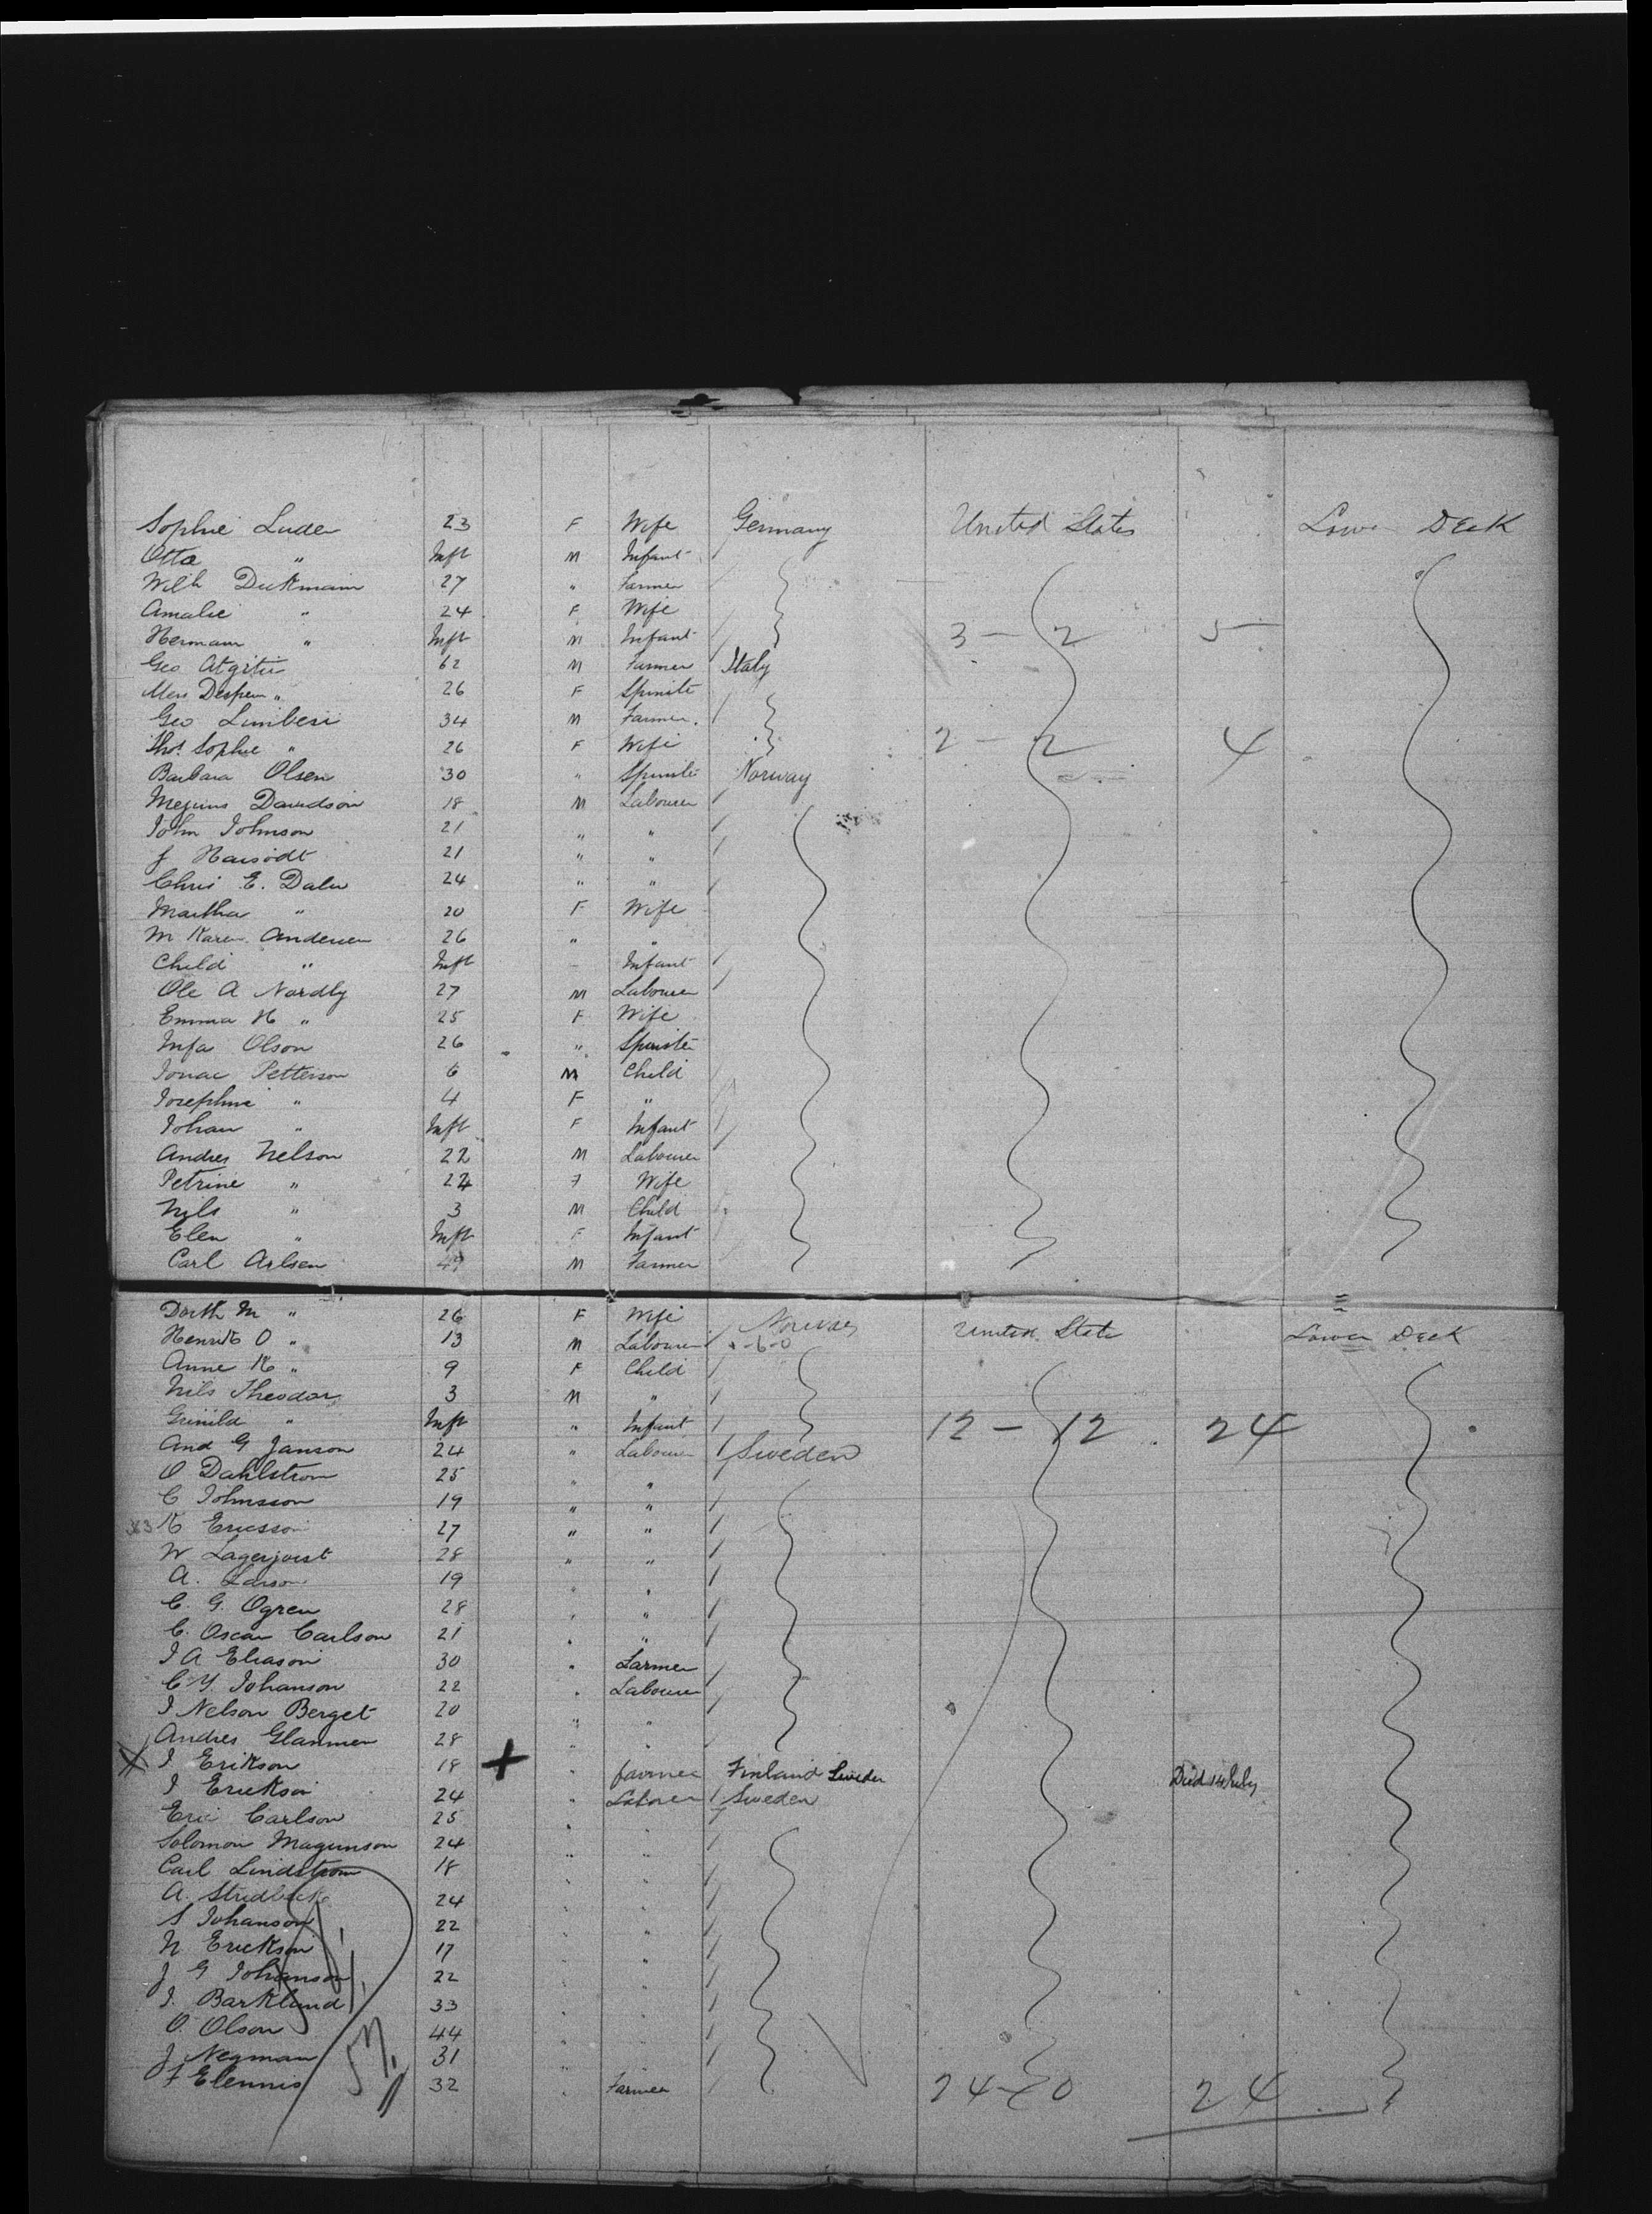 Sophie Luder 23 F Wife Germany United States Lower Deck
Otto " Inft M Infant
Wilh Dickmann 27 " Farmer
Amalie " 24 F Wife
Hermann " Inft M Infant 3 - 2 5
Geo 62 M Farmer Italy
26 F Spinste
Geo Limberi 34 M Farmer
Sophie " 26 F Wife 2 - 2 4
Barbara Olsen 30 " Spinste Norway
Davidson 18 M Labourer
John Johnson 21 " "
J 21 " "
Chris E. 24 " "
Martha " 20 F Wife
M Karen Andersen 26 " "
Child " Inft - Infant
Ole A Nordby 27 M Labourer
Emma H " 25 F Wife
Olson 26 " Spinste
Petterson 6 M Child
Josephine " 4 F "
Johan " Inft F Infant
Andres Nelson 22 M Labourer
Petrine " 24 F Wife
Nils " 3 M Child
Elen " Inft F Infant
Carl Arlsen M Farmer
Dorth M " 26 F Wife Norway United State Lower Deck
Henrik O " 13 M Labourer
Anne K " 9 F Child
Nils Theodor 3 M "
" Inft " Infant 12 - 12 24
And G Janson 24 " Labourer Sweden
O Dahlstrom 25 " "
C Johnsson 19 " "
K Ericsson 27 " "
W 28 " "
A. Larson 19 " "
C. G. Ogren 28 " "
C. Oscar Carlson 21 " "
I A Eliason 30 " Farmer
C Y. Johanson 22 " Labourer
I Nelson Berget 20 " "
Andres 28 " "
X I Erikson 18 + " farmer Finland Sweden Died 14 July
I Erickson 24 " Labourer Sweden
Eric Carlson 25 " "
Solomon Magunson 24 " "
Carl Lindstrom 18 " "
A. 24 " "
S Johanson 22 " "
N Erickson 17 " "
J G Johanson 22 " "
I. Barklund 33 " "
O. Olson 44 " "
J Neyman 31 " "
32 " Farmer 24 - 0 24